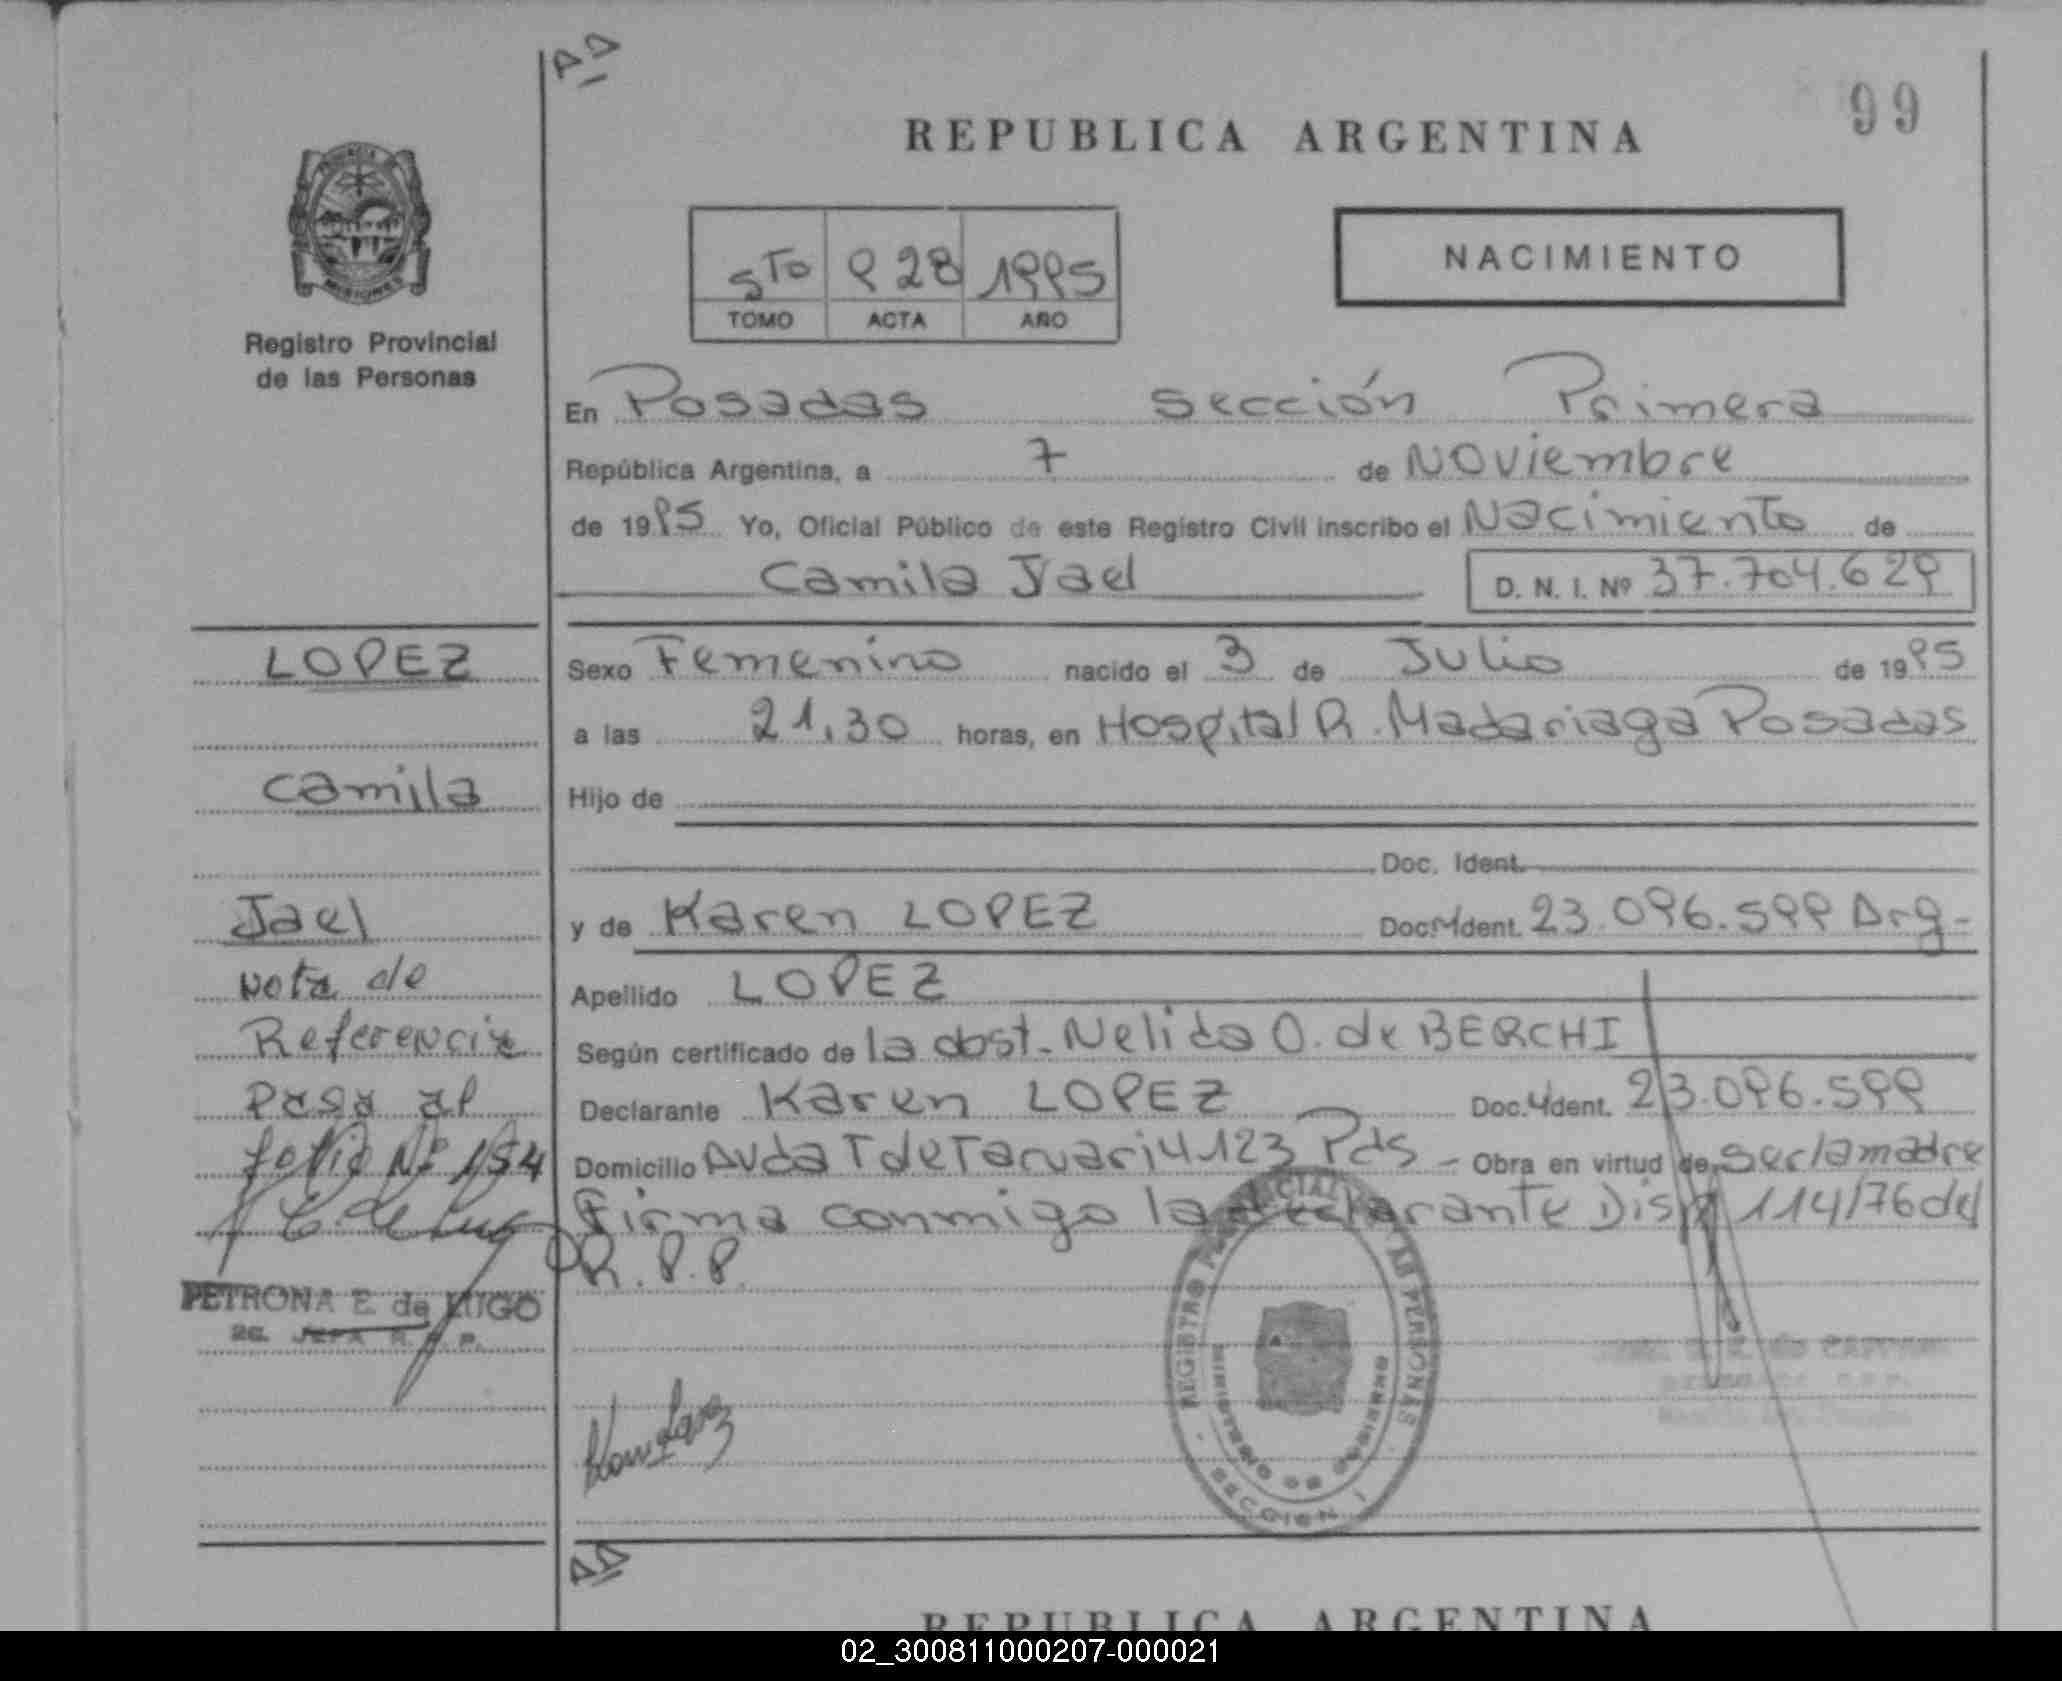 99
REPUBLICA ARGENTINA
MISIONES
Registro Provincial
de las Personas
5to 928 1995
TOMO ACTA AÑO
NACIMIENTO
En Posadas sección Primera
República Argentina, a 7 de Noviembre
de 1995 Yo, Oficial Público de este Registro Civil inscribo el Nacimiento de
Camila Jael D. N. I. Nº 37.704.629
LOPEZ
Camila
Jael
Nota de
Referencia
Pasa al
folio Nº 154
PETRONA E. de LUGO
2G. JEFA R. P. P.
Sexo Femenino nacido el 3 de Julio de 1995
a las 21,30 horas, en Hospital R. Madariaga Posadas
Hijo de
Doc. Ident.
y de Karen LOPEZ Doc. Ident. 23.096.599 Arg-
Apellido LOPEZ
Según certificado de la obst. Nelida O. de BERCHI
Declarante Karen LOPEZ Doc. Ident. 23.096.599
Domicilio Avda T de Tacuari 4123 Pds - Obra en virtud de ser la madre
Firma conmigo la declarante Disp 114/76 del
R.P.P.
REGISTRO PROVINCIAL DE LAS PERSONAS
MINISTERIO DE GOBIERNO
- SECCION I -
REPUBLICA ARGENTINA
02_300811000207-000021